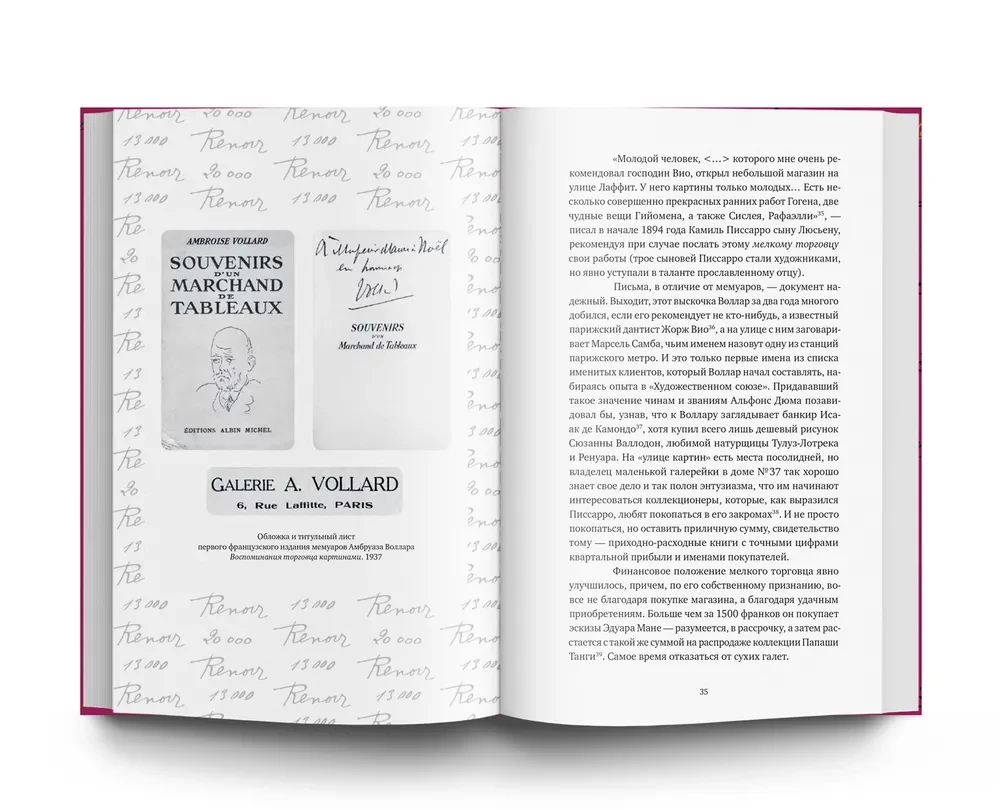 Renoir 20 000 Renoir 20 000
13 000 Renoir 13 000 Renoir
Renoir 20 000 Renoir 20 000
13 000 Renoir 13 000 Renoir
AMBROISE VOLLARD
SOUVENIRS
D'UN
MARCHAND
DE
TABLEAUX
EDITIONS ALBIN MICHEL
À Monsieur Maurice Noël
en hommage
Vollard
SOUVENIRS
D'UN
Marchand de Tableaux
GALERIE A. VOLLARD
6, Rue Laffitte, PARIS
Обложка и титульный лист
первого французского издания мемуаров Амбруаза Воллара
Воспоминания торговца картинами. 1937
13 000 Renoir 13 000 Renoir
Renoir 20 000 Renoir 20 000
13 000 Renoir 13 000 Renoir
Renoir 13 000 Renoir 13 000
«Молодой человек, <…> которого мне очень ре-
комендовал господин Вио, открыл небольшой магазин на
улице Лаффит. У него картины только молодых… Есть не-
сколько совершенно прекрасных ранних работ Гогена, две
чудные вещи Гийомена, а также Сислея, Рафаэлли»³⁵, —
писал в начале 1894 года Камиль Писсарро сыну Люсьену,
рекомендуя при случае послать этому мелкому торговцу
свои работы (трое сыновей Писсарро стали художниками,
но явно уступали в таланте прославленному отцу).
Письма, в отличие от мемуаров, — документ на-
дежный. Выходит, этот выскочка Воллар за два года многого
добился, если его рекомендует не кто-нибудь, а известный
парижский дантист Жорж Вио³⁶, а на улице с ним заговари-
вает Марсель Самба, чьим именем назовут одну из станций
парижского метро. И это только первые имена из списка
именитых клиентов, который Воллар начал составлять, на-
бираясь опыта в «Художественном союзе». Придававший
такое значение чинам и званиям Альфонс Дюма позави-
довал бы, узнав, что к Воллару заглядывает банкир Иса-
ак де Камондо³⁷, хотя купил всего лишь дешевый рисунок
Сюзанны Валлодон, любимой натурщицы Тулуз-Лотрека
и Ренуара. На «улице картин» есть места посолидней, но
владелец маленькой галерейки в доме № 37 так хорошо
знает свое дело и так полон энтузиазма, что им начинают
интересоваться коллекционеры, которые, как выразился
Писсарро, любят покопаться в его закромах³⁸. И не просто
покопаться, но оставить приличную сумму, свидетельство
тому — приходно-расходные книги с точными цифрами
квартальной прибыли и именами покупателей.
Финансовое положение мелкого торговца явно
улучшилось, причем, по его собственному признанию, во-
все не благодаря покупке магазина, а благодаря удачным
приобретениям. Больше чем за 1500 франков он покупает
эскизы Эдуара Мане — разумеется, в рассрочку, а затем рас-
стается с такой же суммой на распродаже коллекции Папаши
Танги³⁹. Самое время отказаться от сухих галет.
35